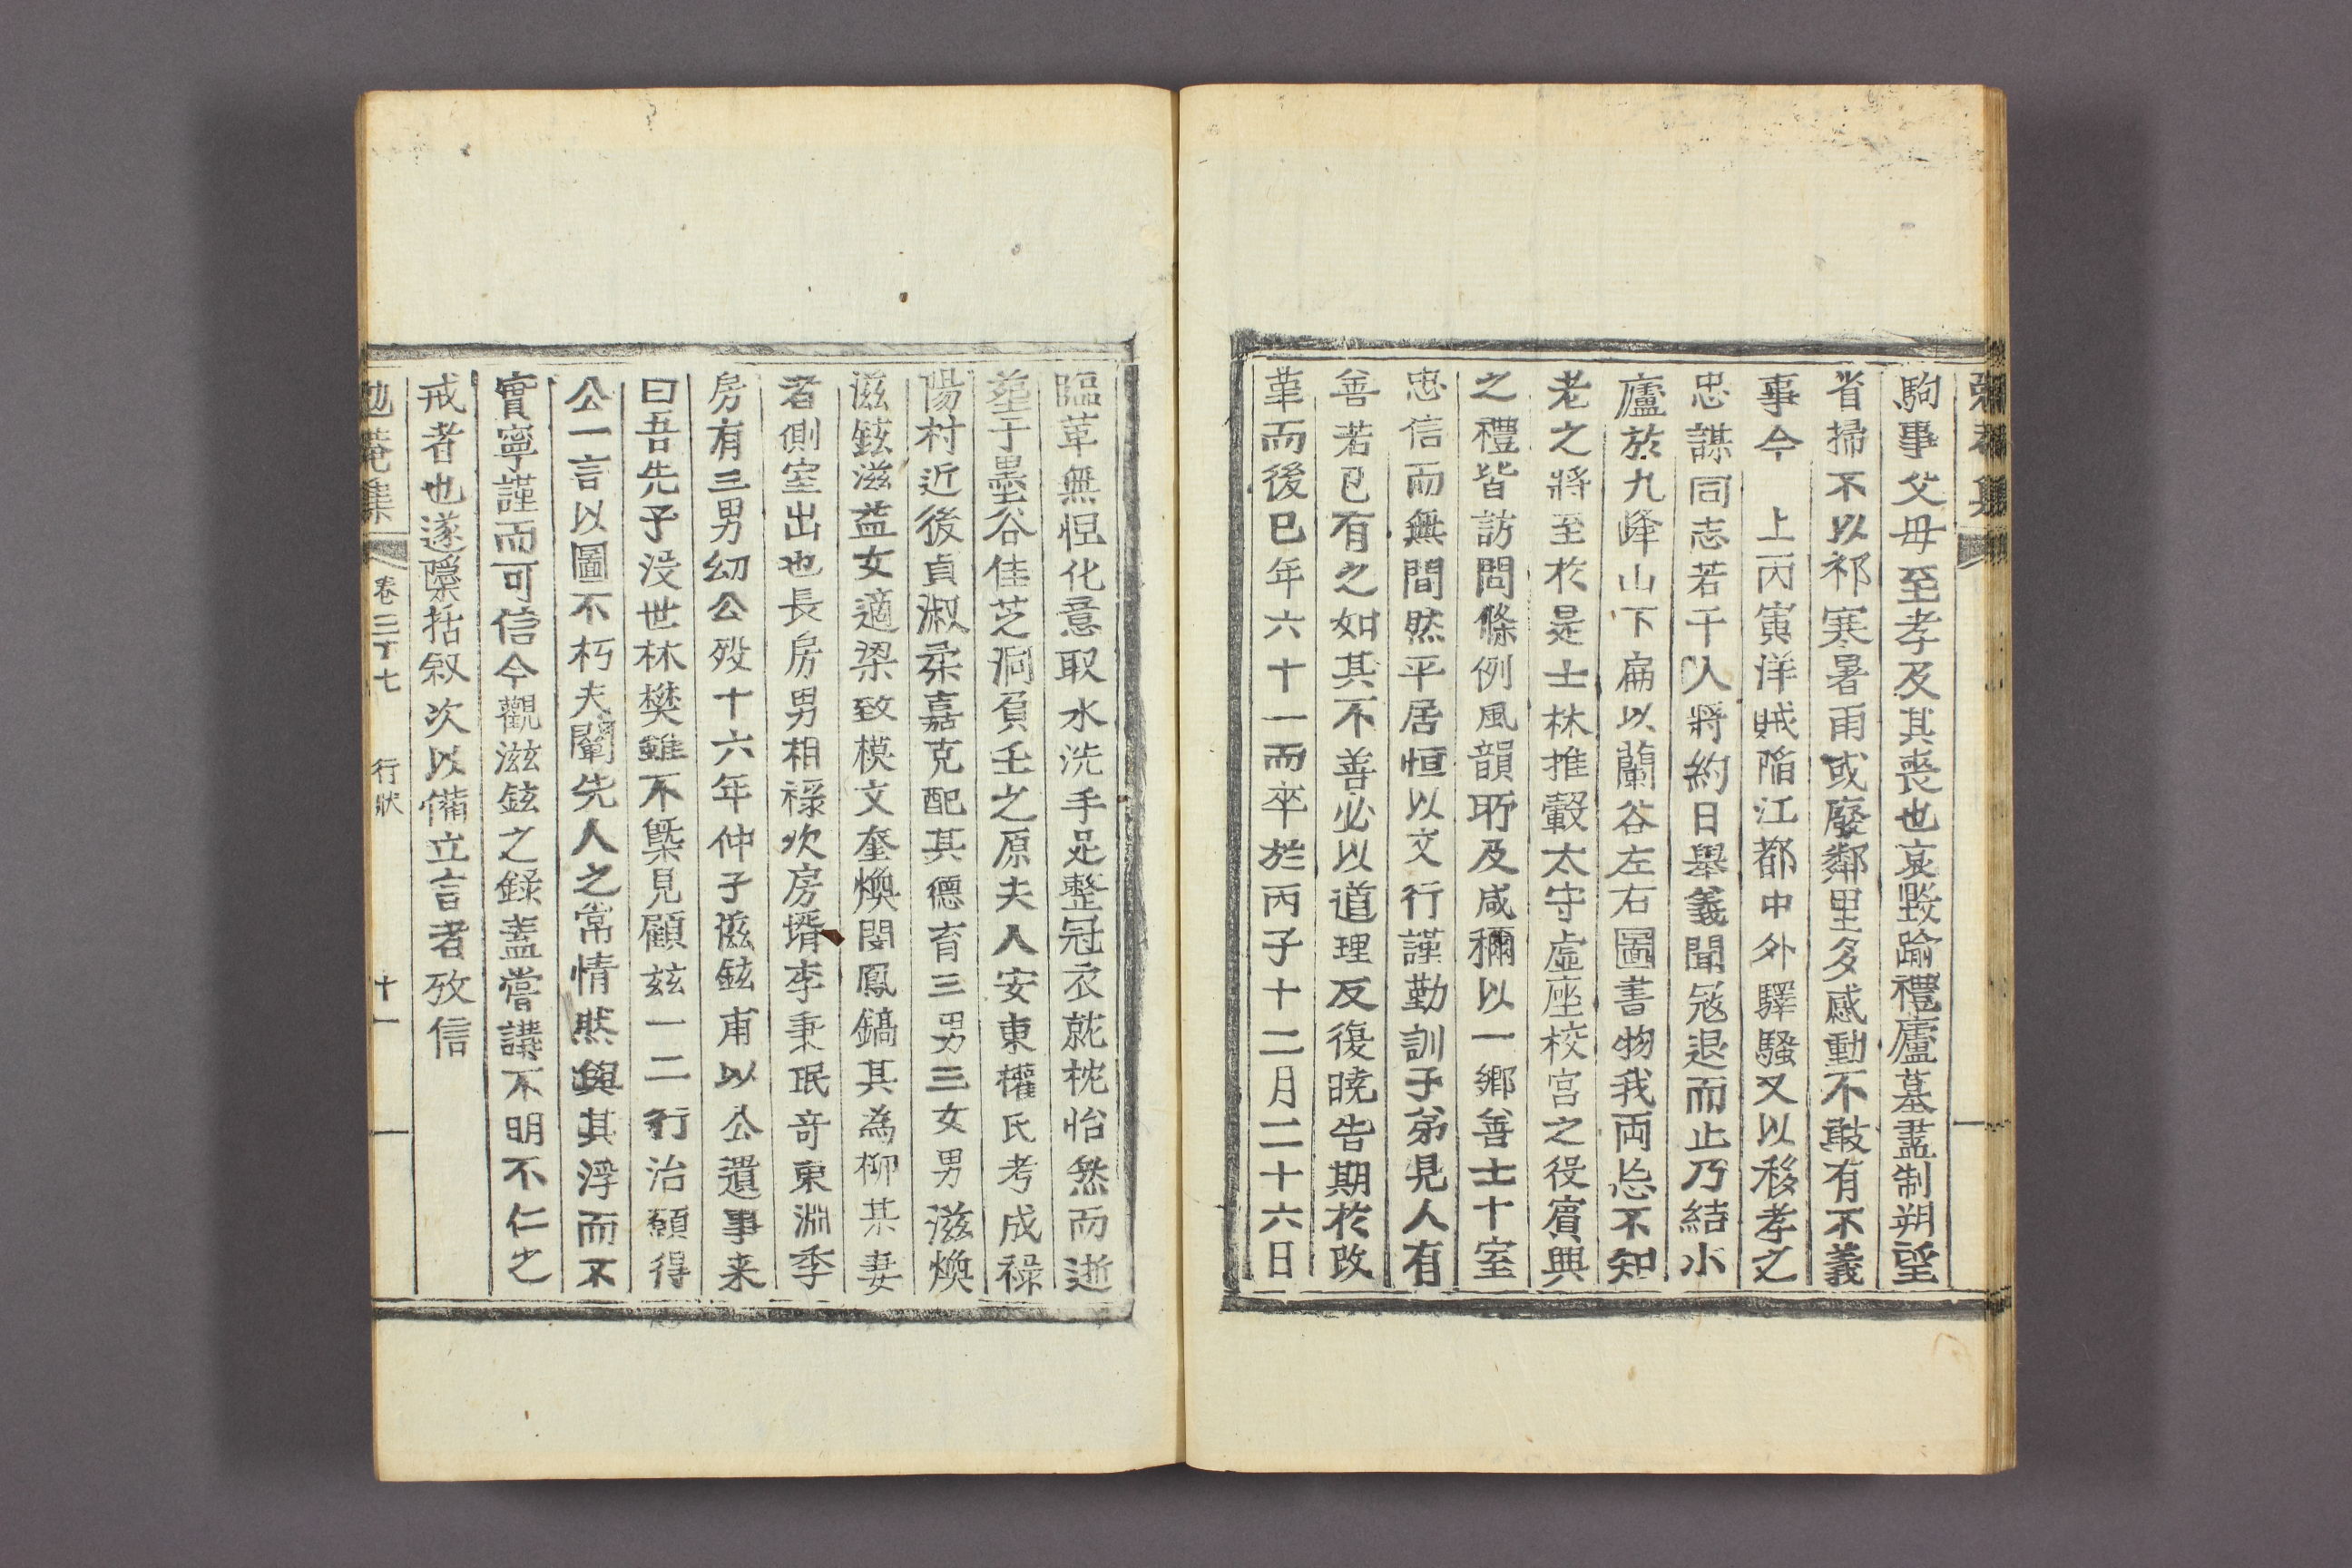 駒事父母至孝及其喪也哀毀踰禮廬墓盡制朔望
省掃不以祁寒暑雨或廢鄰里多感動不敢有不義
事今　上丙寅洋賊陷江都中外驛騷又以移孝之
忠謀同志若干人將約日舉義聞冦退而止乃結小
廬於九峰山下扁以蘭谷左右圖書物我両忘不知
老之將至於是士林推轂太守虛座校宮之役賓興
之禮皆訪問條例風韻所及咸稱以一鄉善士十室
忠信而無間然平居恒以文行謹勤訓子弟見人有
善若已有之如其不善必以道理反復曉告期於改
革而後已年六十一而卒於丙子十二月二十六日
臨革無怛化意取水洗手足整冠衣就枕怡然而逝
葬于墨谷佳芝洞負壬之原夫人安東權氏考成祿
陽村近後貞淑柔嘉克配其德育三男三女男滋煥
滋鉉滋益女適梁致模文奎煥閔鳳鎬其為柳某妻
者側室出也長房男相祿次房壻李秉珉奇東淵季
房有三男幼公歿十六年仲子滋鉉甫以公遺事来
曰吾先子没世林樊雖不槩見顧玆一二行治願得
公一言以圖不朽夫闡先人之常情然與其浮而不
實寧謹而可信今觀滋鉉之錄盖嘗講不明不仁之
戒者也遂隱括叙次以備立言者攷信
勉菴集　卷三十七　行狀　十一